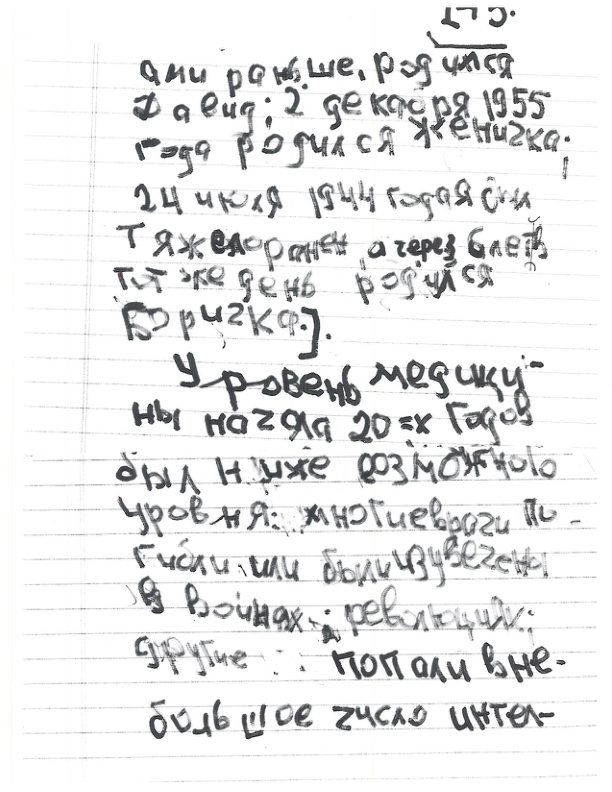 175.
ами раньше, родился
Давид; 2 декабря 1955
года родился Женичка;
24 июля 1944 года я был
тяжело ранен, а через 6 лет в
тот же день родился
Боричка.].
Уровень медици-
ны начала 20=х годов
был ниже возможного
уровня: многие врачи по-
гибли или были изувечены
в войнах, революциях;
другие попали в не-
большое число интел-